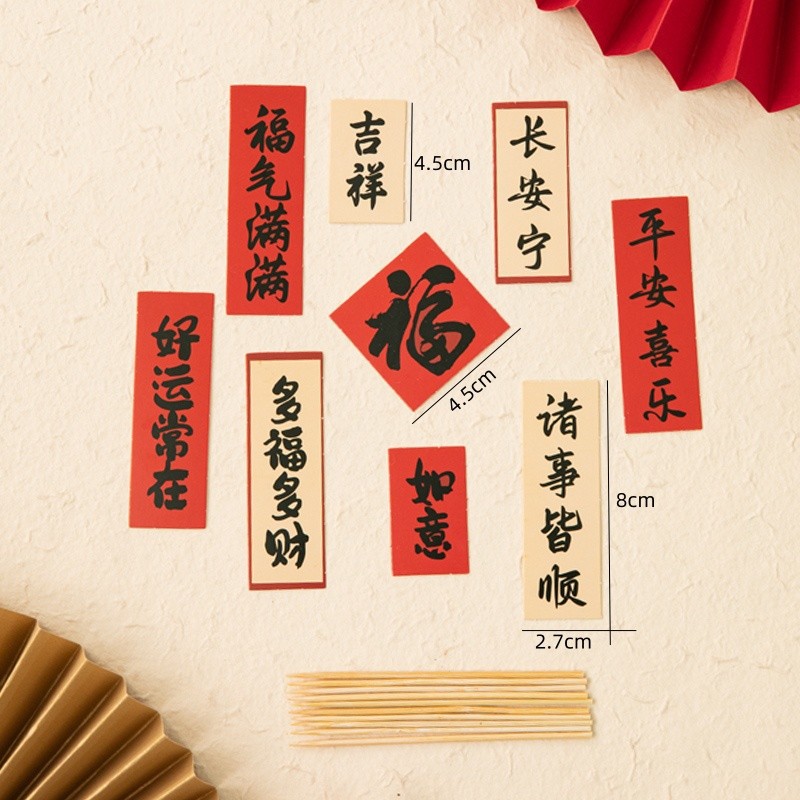 福气满满
吉祥
4.5cm
长安宁
平安喜乐
福
4.5cm
好运常在
多福多财
如意
诸事皆顺
8cm
2.7cm